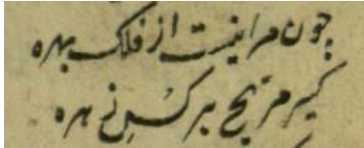 چون مرا نیست از فلک بهره
گیر مریخ بر کس زهره